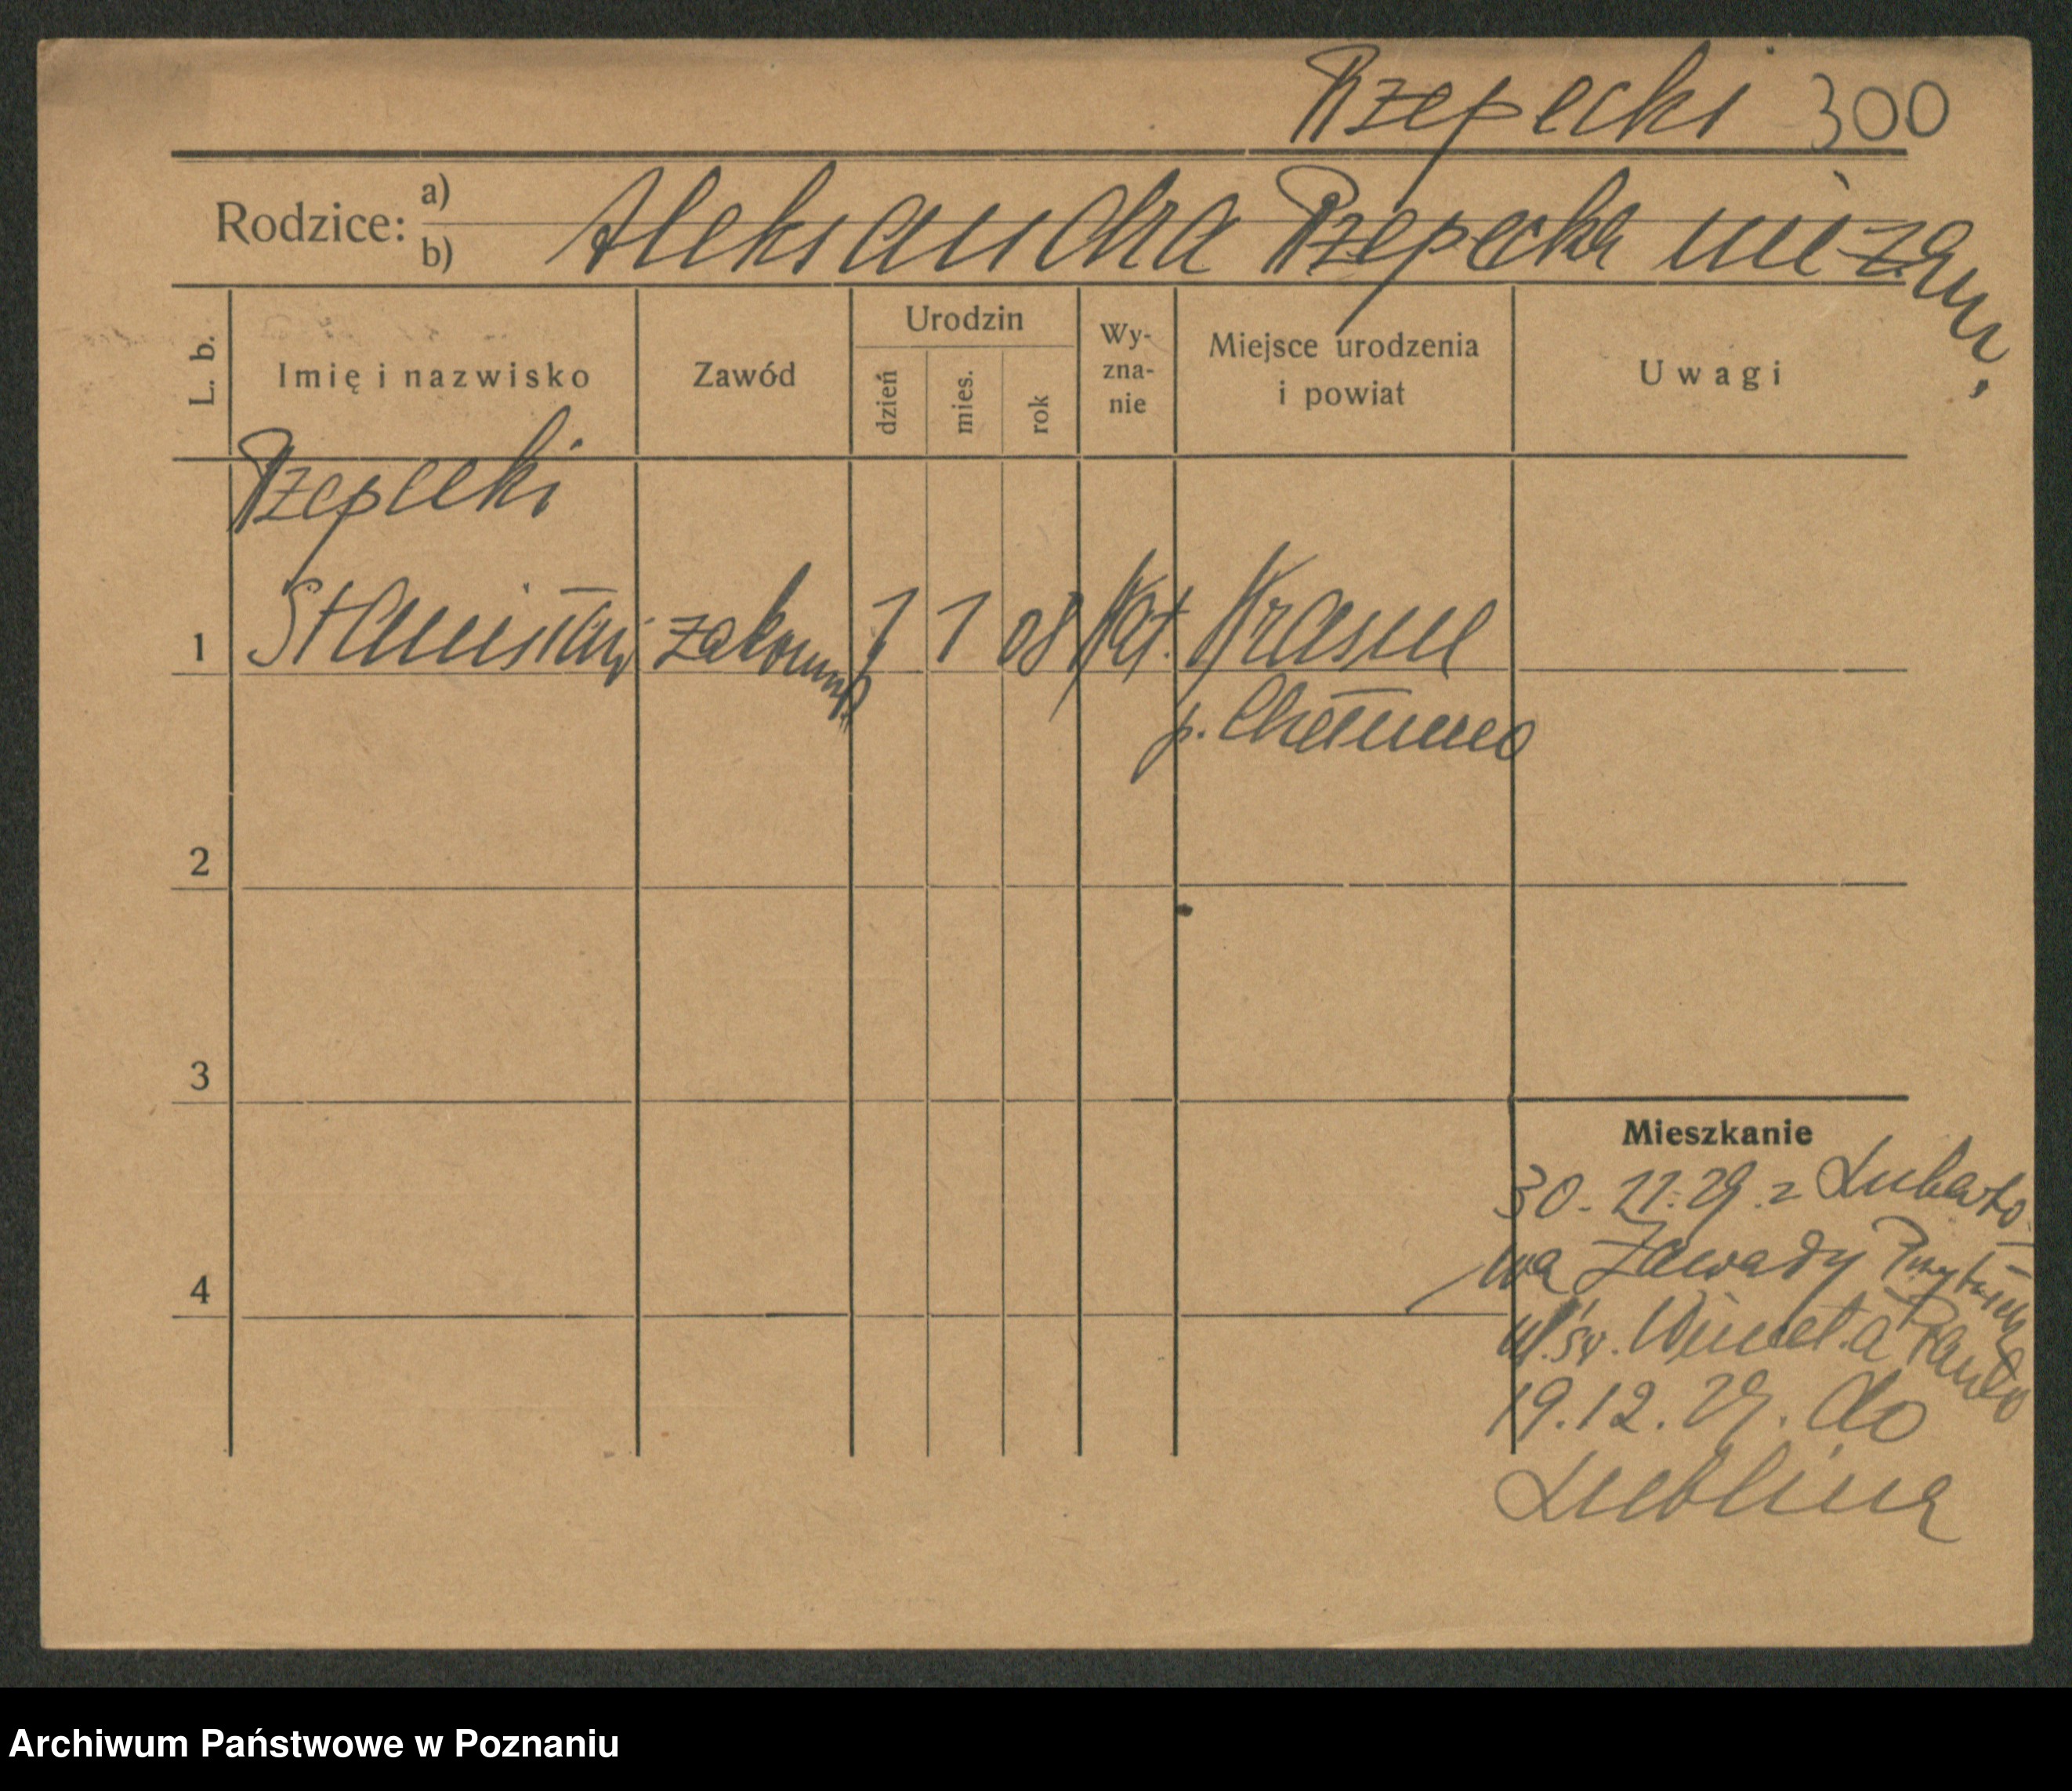 Rzepecki 300
Rodzice: a)
b) Aleksandra Rzepecka niezam.
L. b. Imię i nazwisko Zawód Urodzin dzień mies. rok Wy-zna-nie Miejsce urodzenia i powiat Uwagi
Rzepecki
1 Stanisław zakonnik 1 1 08 kat. Krasne
p. Chełmno
2
3
Mieszkanie
30. 11. 29. z Lubarto-
wa Zawady
4
ul. św. Wincent. a Paulo
19. 12. 29. do
Lublina
Archiwum Państwowe w Poznaniu